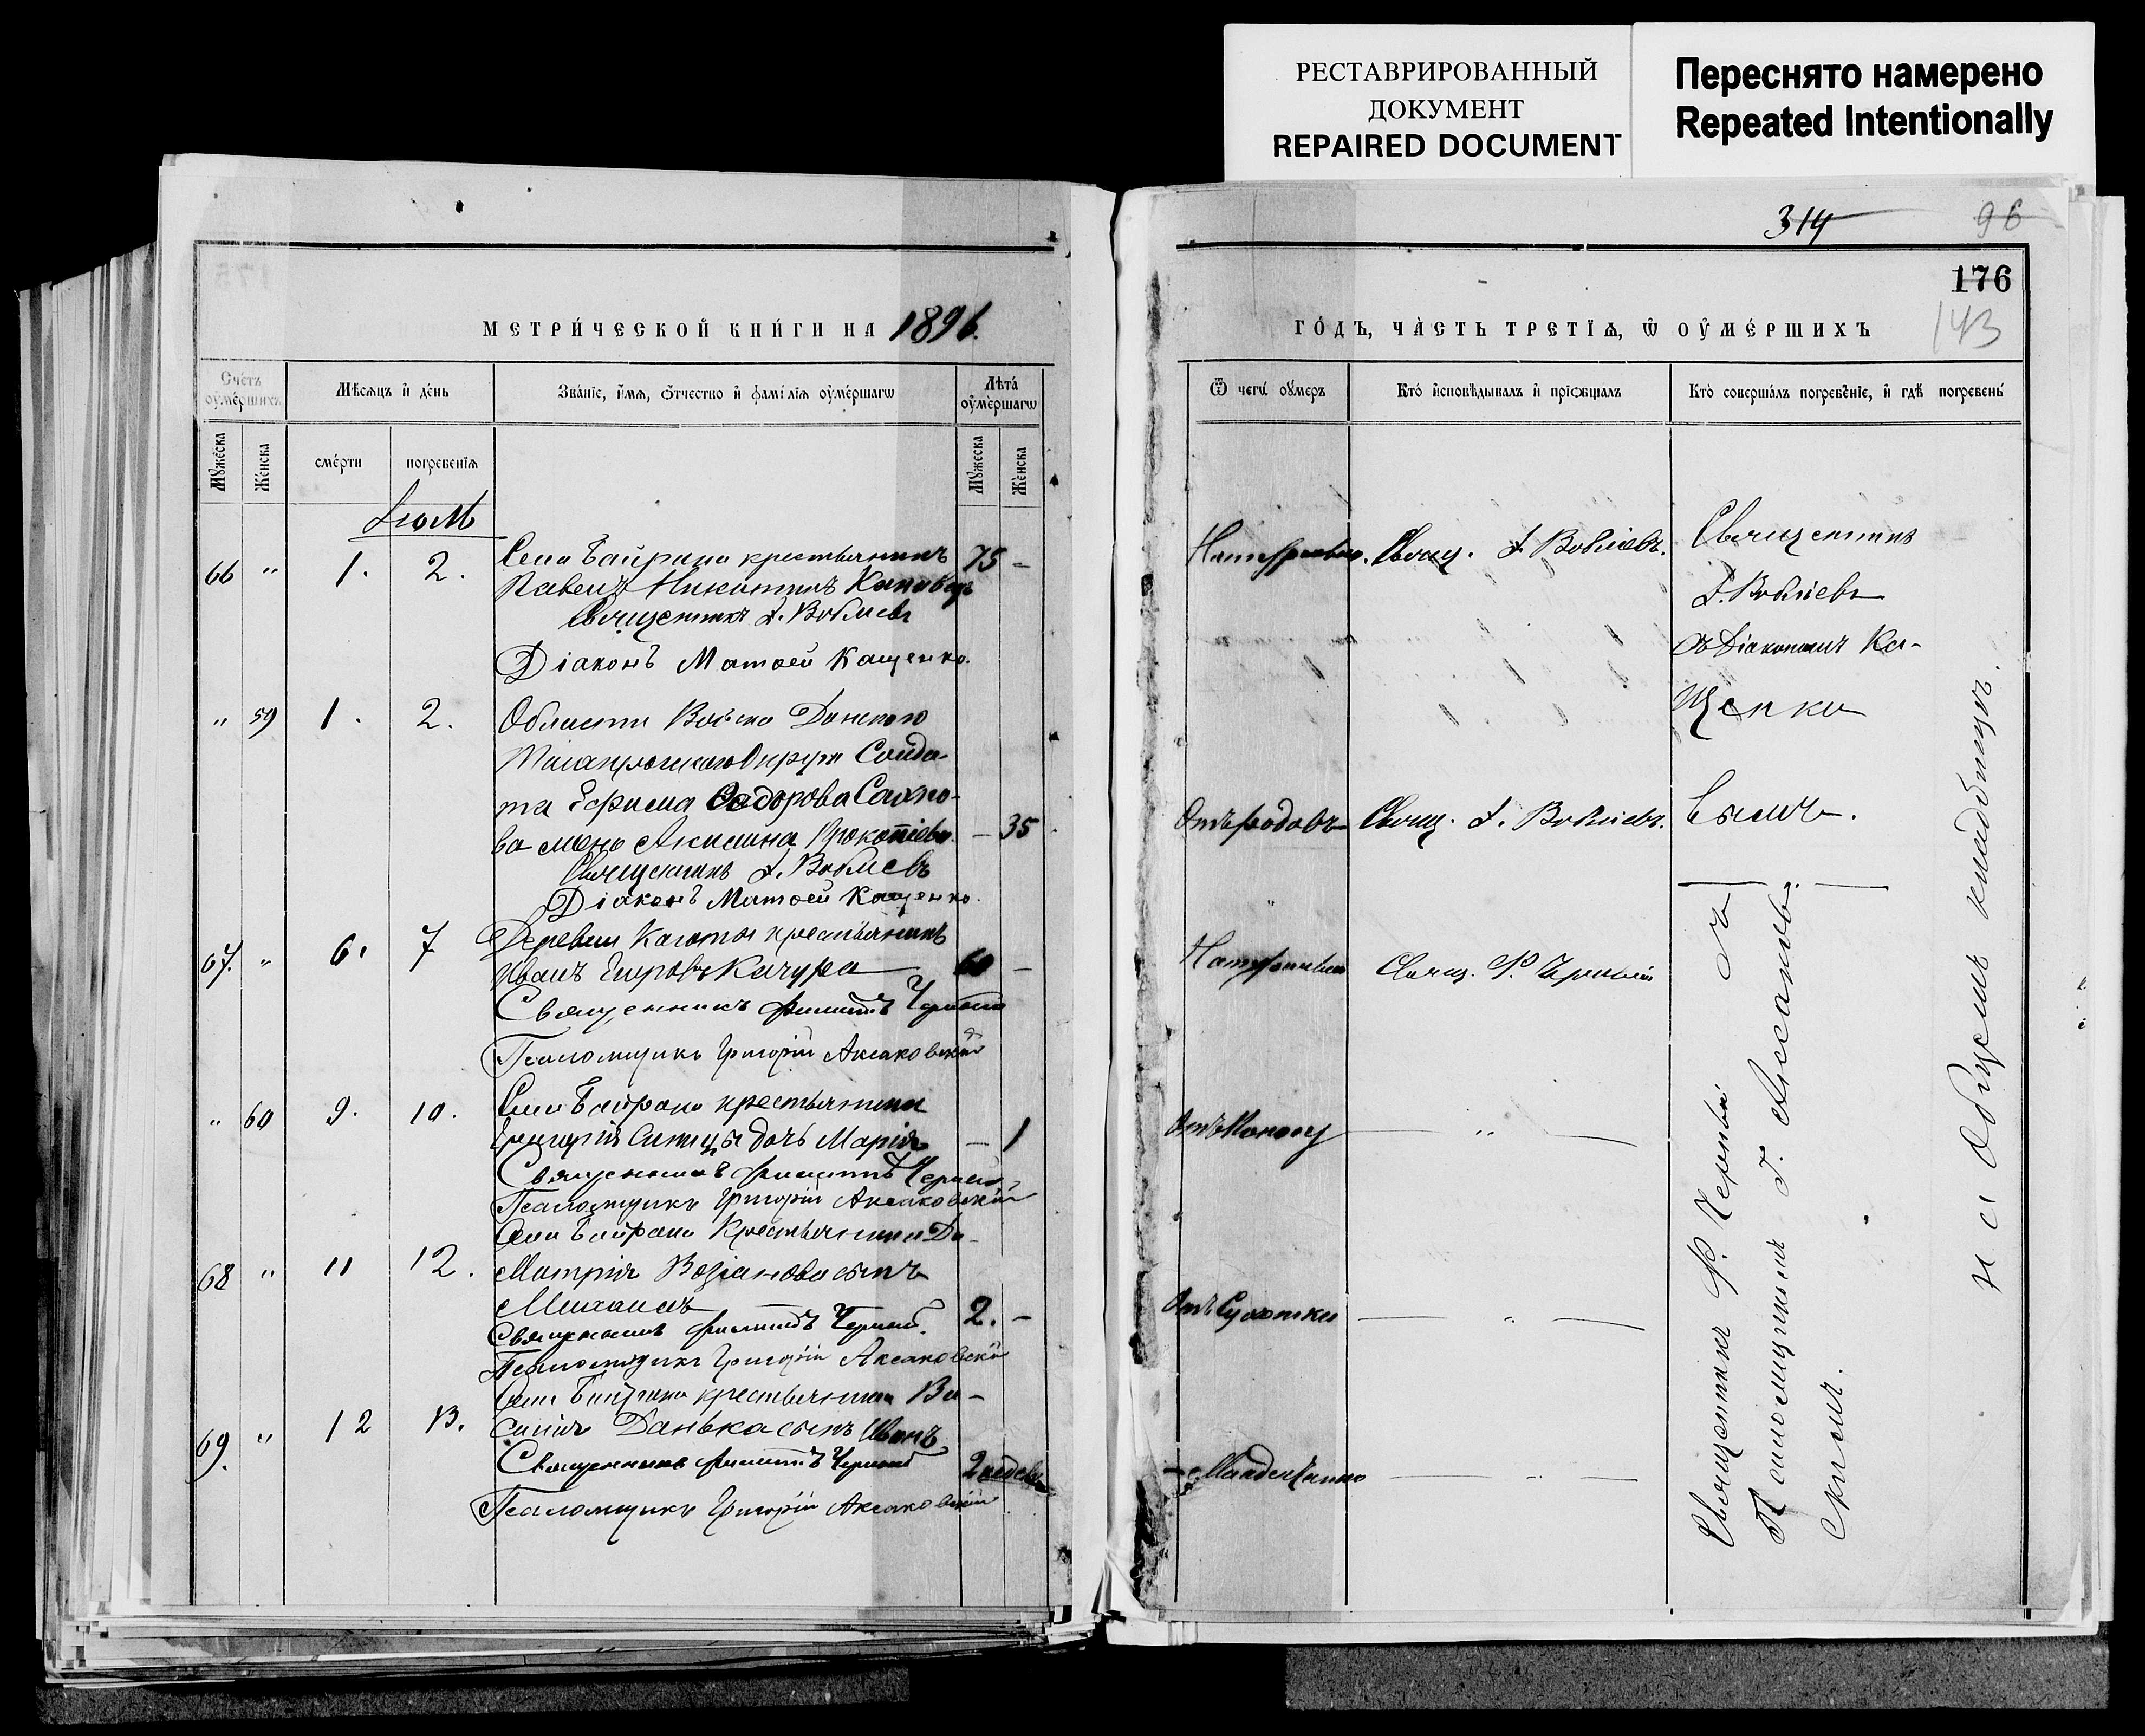 РЕСТАВРИРОВАННЫЙ
ДОКУМЕНТ
REPAIRED DOCUMENT
Переснято намерено
Repeated Intentionally
314
96
176
143
МЕТРИ́ЧЕСКОЙ КНИ́ГИ НА 1896.
ГО́ДЪ, ЧА̀СТЬ ТРЕТІѦ, Ѡ҆ ОУ҆МЕ́РШИХЪ
Сче́тъ оумершихъ
Мѣсѧцъ и҆ де́нь
Зва́ніе, и҆́мѧ, ѻ҆́тчество и҆ фамі́лїѧ оу҆ме́ршагѡ
Лѣта́ оу҆ме́ршагѡ
Ѿ чегѡ̀ оу҆́меръ
Кто̀ и҆сповѣ́дывалъ и҆ прїѡбща́лъ
Кто̀ соверша́лъ погребе́нїе, и҆ гдѣ̀ погребены̀
Мꙋ́жеска
Же́нска
сме́рти
погребе́нїѧ
Мꙋ́жеска
Же́нска
66 " 1. 2. Села Байрака крестьянинъ 75 -
Павелъ Никитинъ
Священникъ І. Воблиевъ
Діаконъ Матѳей Кащенко.
Свящ. І. Воблиевъ.
Священникъ
І. Воблиевъ
съ Діакономъ Ка-
щенко
" 59 1. 2. Области Войска Донскаго
Таганрогскаго Округа Солда-
та Ефима Ѳедорова
ва жена Акилина Прокопіева. - 35
Священникъ І. Воблиевъ
Діаконъ Матѳей Кащенко.
Отъ родовъ Свящ. І. Воблиевъ.
67. " 6. 7 Деревни крестьянинъ
Иванъ Егоровъ Качура 60 -
Священникъ Филиппъ Черный
Псаломщикъ Григорій Аксаковскій
Свящ. Ф. Черный
" 60 9. 10. Села Байрака крестьянина
Григорія Синицы дочь Марія - 1
Священникъ Филиппъ Черный
Псаломщикъ Григорій Аксаковскій
Отъ поносу — " —
68 " 11 12. Села Байрака Крестьянина Ди-
митрія Возіанова сынъ
Михаилъ 2. -
Священникъ Филиппъ Черный.
Псаломщикъ Григорій Аксаковскій
Отъ Сухотки — " —
69. " 12 13. Села Байрака крестьянина Ва-
силія Данька сынъ Иванъ
Священникъ Филиппъ Черный 2 недель
Псаломщикъ Григорій Аксаковскій
— Младенчинно — " —
Священникъ Ф. Черный съ
Псаломщикомъ Г. Аксаковъ-
скимъ.
на Общемъ кладбищѣ.